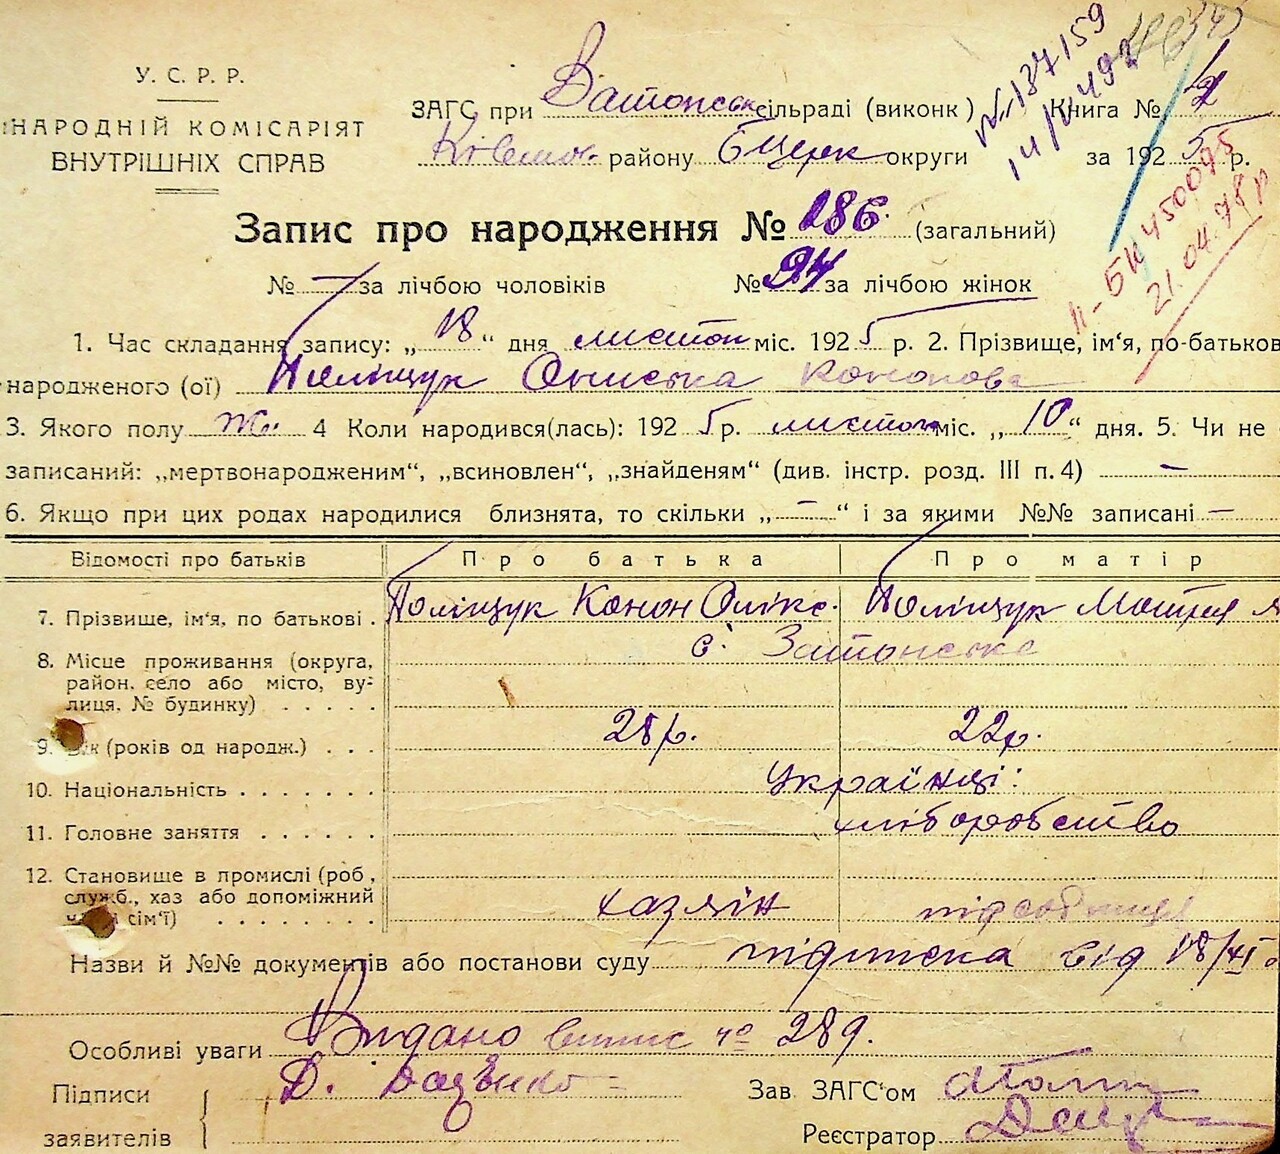 У. С. Р. Р.
НАРОДНІЙ КОМІСАРІЯТ
ВНУТРІШНІХ СПРАВ
ЗАГС при Затонськ сільраді (виконк )
району Бцерк округи
Книга № 2
за 1925 р.
№ 137159
П-БК 450075
21.04.78р
Запис про народження № 286 (загальний)
№ — за лічбою чоловіків № 94 за лічбою жінок
1. Час складання запису: „ 18 “ дня листоп міс. 1925 р. 2. Прізвище, ім‘я, по-батькові
народженого (ої) Поліщук Ониська Кононова
3. Якого полу ж. 4 Коли народився(лась): 1925 р. листоп міс. „ 10 “ дня. 5. Чи не
записаний: „мертвонародженим“, „всиновлен“, „знайденям“ (див. інстр. розд. III п. 4) —
6. Якщо при цих родах народилися близнята, то скільки „ — “ і за якими №№ записані —
Відомості про батьків Про батька Про матір
7. Прізвище, ім‘я, по батькові . Поліщук Конон Оликс. Поліщук Мотря
8. Місце проживання (округа, район, село або місто, вулиця, № будинку) . . . . . с. Затонське
9. Вік (років од народж.) . . . 28р. 22р.
10. Національність . . . . . . . Українці
11. Головне заняття . . . . . . хліборобство
12. Становище в промислі (роб, служб., хаз або допоміжний член сім‘ї) . . . . . . . . хазяїн підсобниця
Назви й №№ документів або постанови суду підписка від 18/XI
Особливі уваги Видано витис № 289.
Підписи
заявителів
Д.
Зав ЗАГС‘ом
Реєстратор